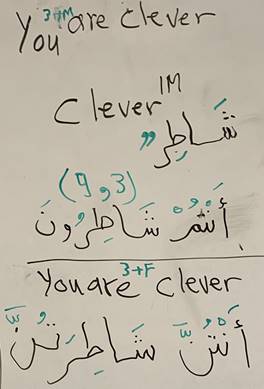 3+M
You are clever
Clever 1M
شَاطِر
(9,3)
أَنْتُمْ شَاطِرُونَ
3+F
You are clever
أَنْتُنَّ شَاطِرَتُنَّ